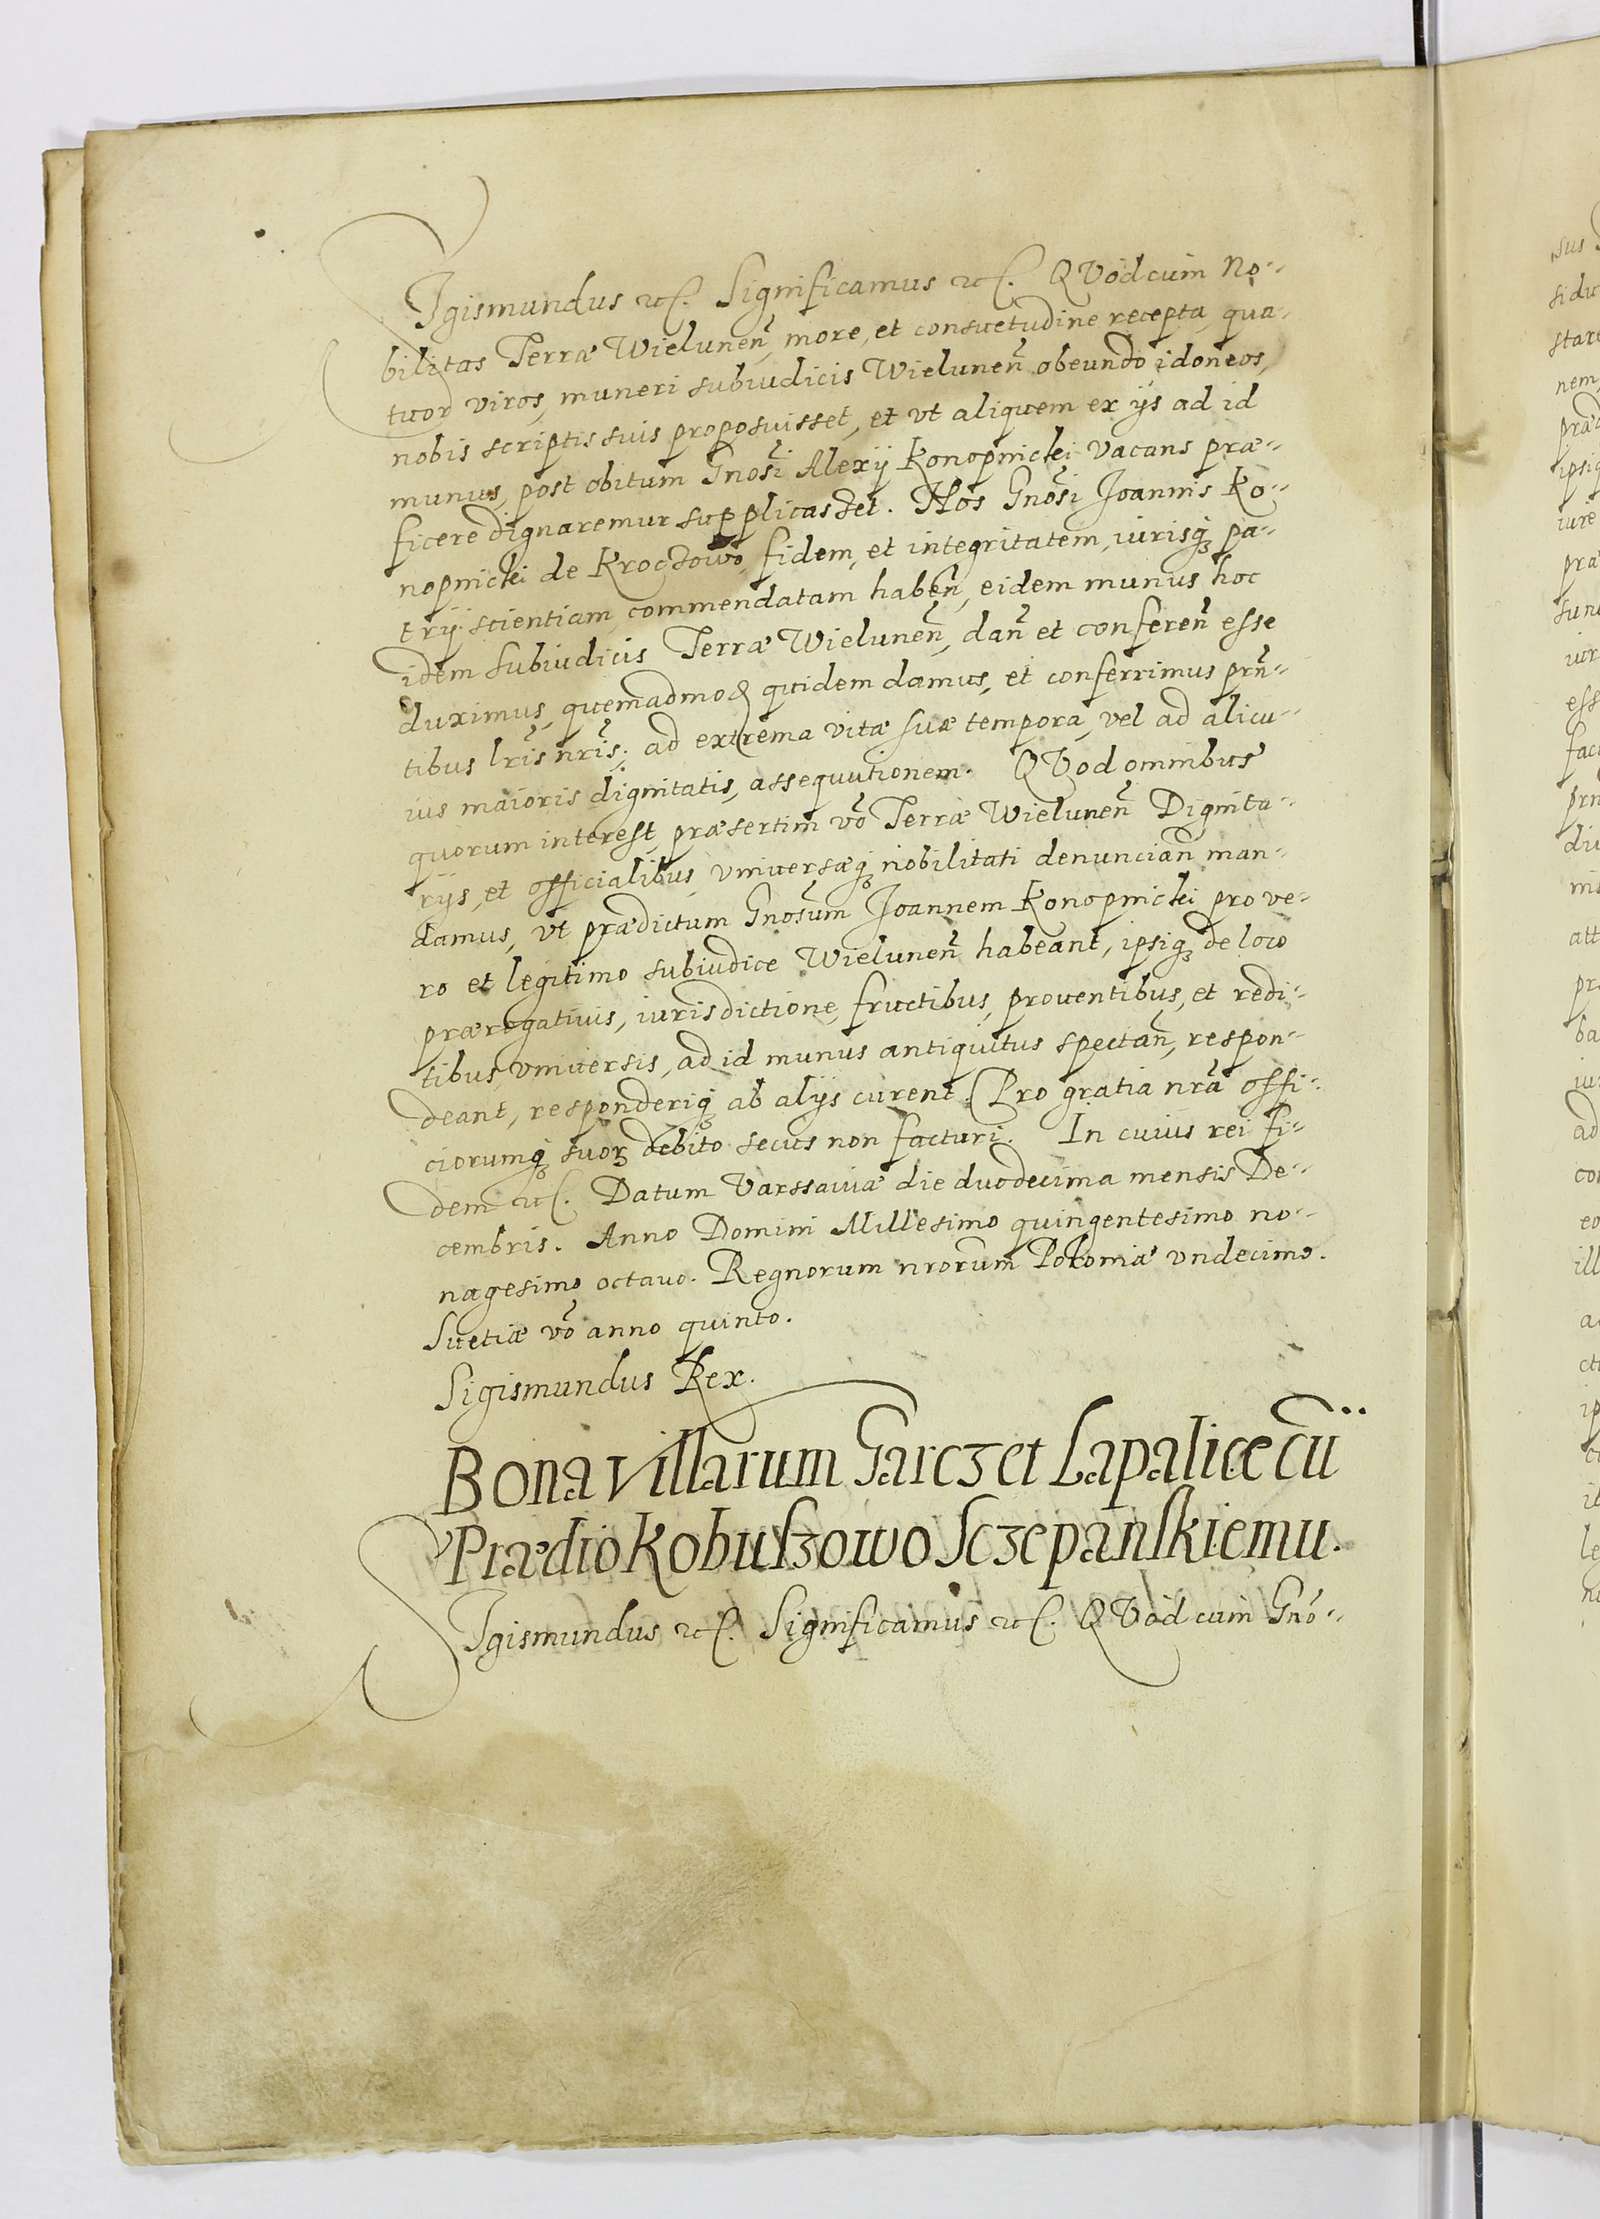 Sigismundus etc. Significamus etc. QVod cum No-
bilitas Terræ Wielunen̄, more, et consuetudine recepta, qua-
tuor viros, muneri subiudicis Wielunen̄ obeundo idoneos,
nobis scriptis suis proposuisset, et vt aliquem ex ijs ad id
munus, post obitum Gnosi Alexij Konopnicki vacans præ-
ficere dignaremur supplicasset. Nos Gnosi Joannis Ko-
nopnicki de Kroczowo, fidem, et integritatem, iurisq́ pa-
trij scientiam, commendatam haben̄, eidem munus hoc
idem subiudicis Terræ Wielunen̄, dan̄ et conferen̄ esse
duximus, quemadmod quidem damus, et conferrimus prn̄-
tibus lris nris; ad extrema vitæ suæ tempora, vel ad alicu-
ius maioris dignitatis, assequutionem. QVod omnibus
quorum interest, præsertim vo Terræ Wielunen̄ Dignita-
rijs, et officialibus, vniversæq́ nobilitati denuncian̄ man-
damus, vt prædictum Gnosum Joannem Konopnicki pro ve-
ro et legitimo subiudice Wielunen̄ habeant, ipsiq́ de loco
prærogativis, iurisdictione, fructibus, proventibus, et redi-
tibus vniversis, ad id munus antiquitus spectan̄, respon-
deant, responderiq́ ab alijs curent. Pro gratia nra offi-
ciorumq́ suoꝝ debito secus non facturi. In cuius rei fi-
dem etc. Datum Varssaviæ die duodecima mensis De-
cembris. Anno Domini Millesimo quingentesimo no-
nagesimo octavo. Regnorum nrorum Poloniæ vndecimo.
Suetiæ vo anno quinto.
Sigismundus Rex.
Bona Villarum Garcz et Lapalice cū
Prædio Kobuszowo Sczepanskiemu.
Sigismundus etc. Significamus etc. QVod cum Gno-